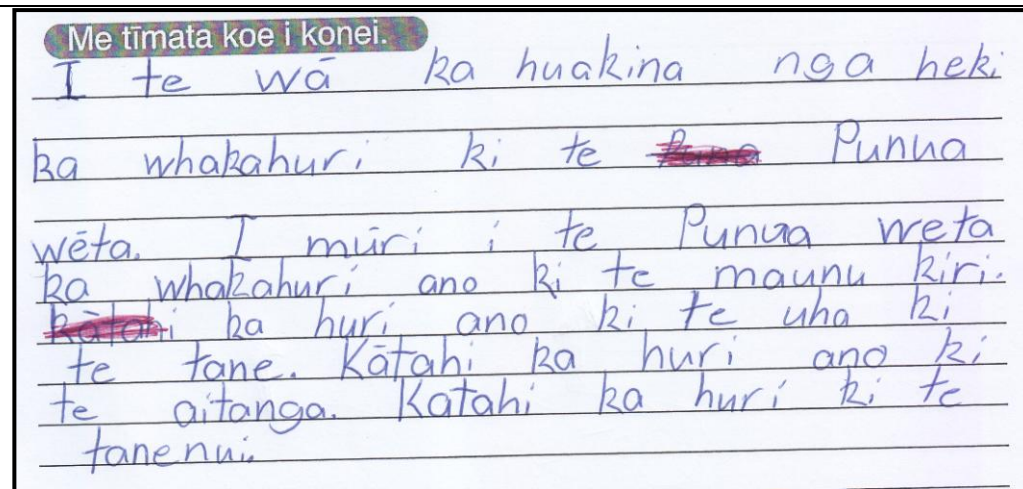 Me tīmata koe i konei.
I te wā ka huakina nga heki
ka whakahuri ki te Punua
wēta. I mūri i te Punua weta
ka whakahuri ano ki te maunu kiri.
Kātahi ka huri ano ki te uha ki
te tane. Kātahi ka huri ano ki
te aitanga. Katahi ka huri ki te
tanenui.